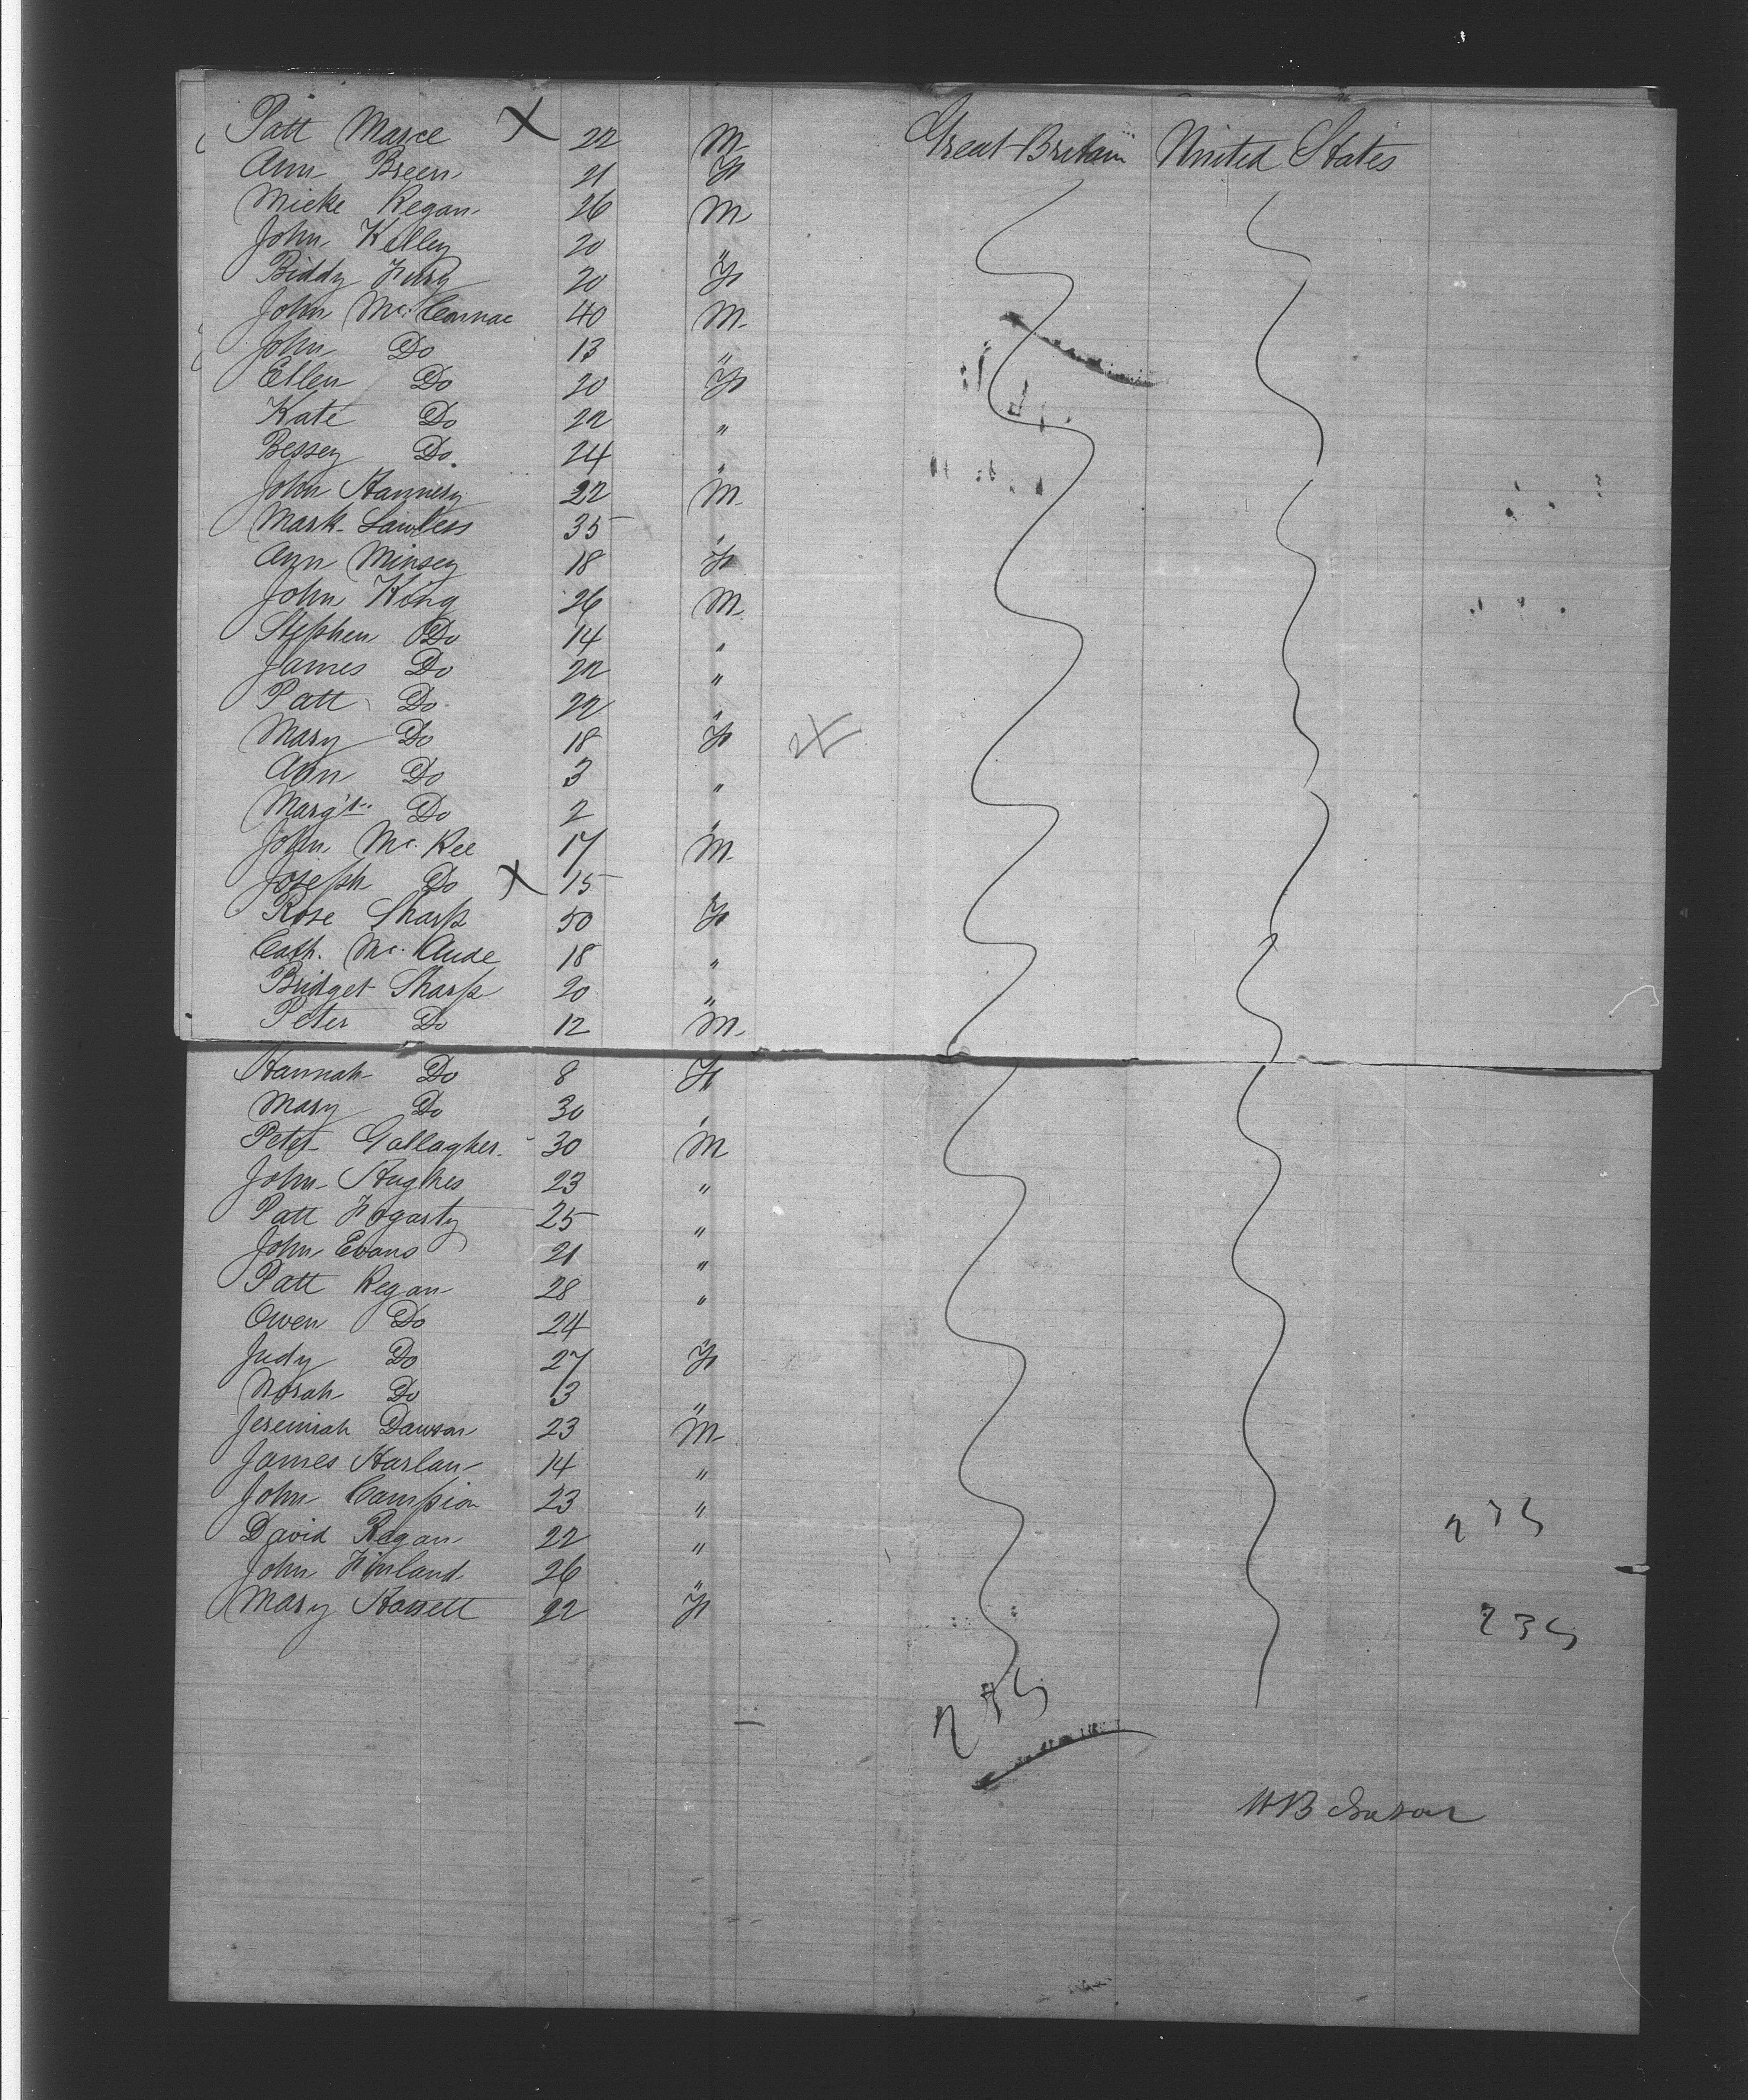 Patt Marce X 22 M Great Britain United States
Ann Breen 21 F
Micke Regan 26 M
John Kelley 20 "
Biddy Fury 20 F
John Mc. Cormac 40 M
John Do 13 "
Ellen Do 20 F
Kate Do 22 "
Bessey Do 24 "
John Hannery 22 M
Mark Lawless 35 "
Ann Minsey 18 F
John King 26 M
Stephen Do 14 "
James Do 22 "
Patt Do 22 "
Mary Do 18 F
Ann Do 3 "
Margt. Do 2 "
John Mc. Kee 17 M
Joseph Do X 15
Rose Sharp 50 F
Cath. Mc. 18 "
Bridget Sharp 20 "
Peter Do 12 M
Hannah Do 8 F
Mary Do 30 "
Peter Gallagher 30 M
John Hughes 23 "
Patt Fogarty 25 "
John Evans 21 "
Patt Regan 28 "
Owen Do 24
Judy Do 27 F
Norah Do 3 "
Jeremiah Dawson 23 M
James Harlan 14 "
John Campion 23 "
David Regan 22 "
John Finland 26 "
Mary Hassett 22 F
235
WB